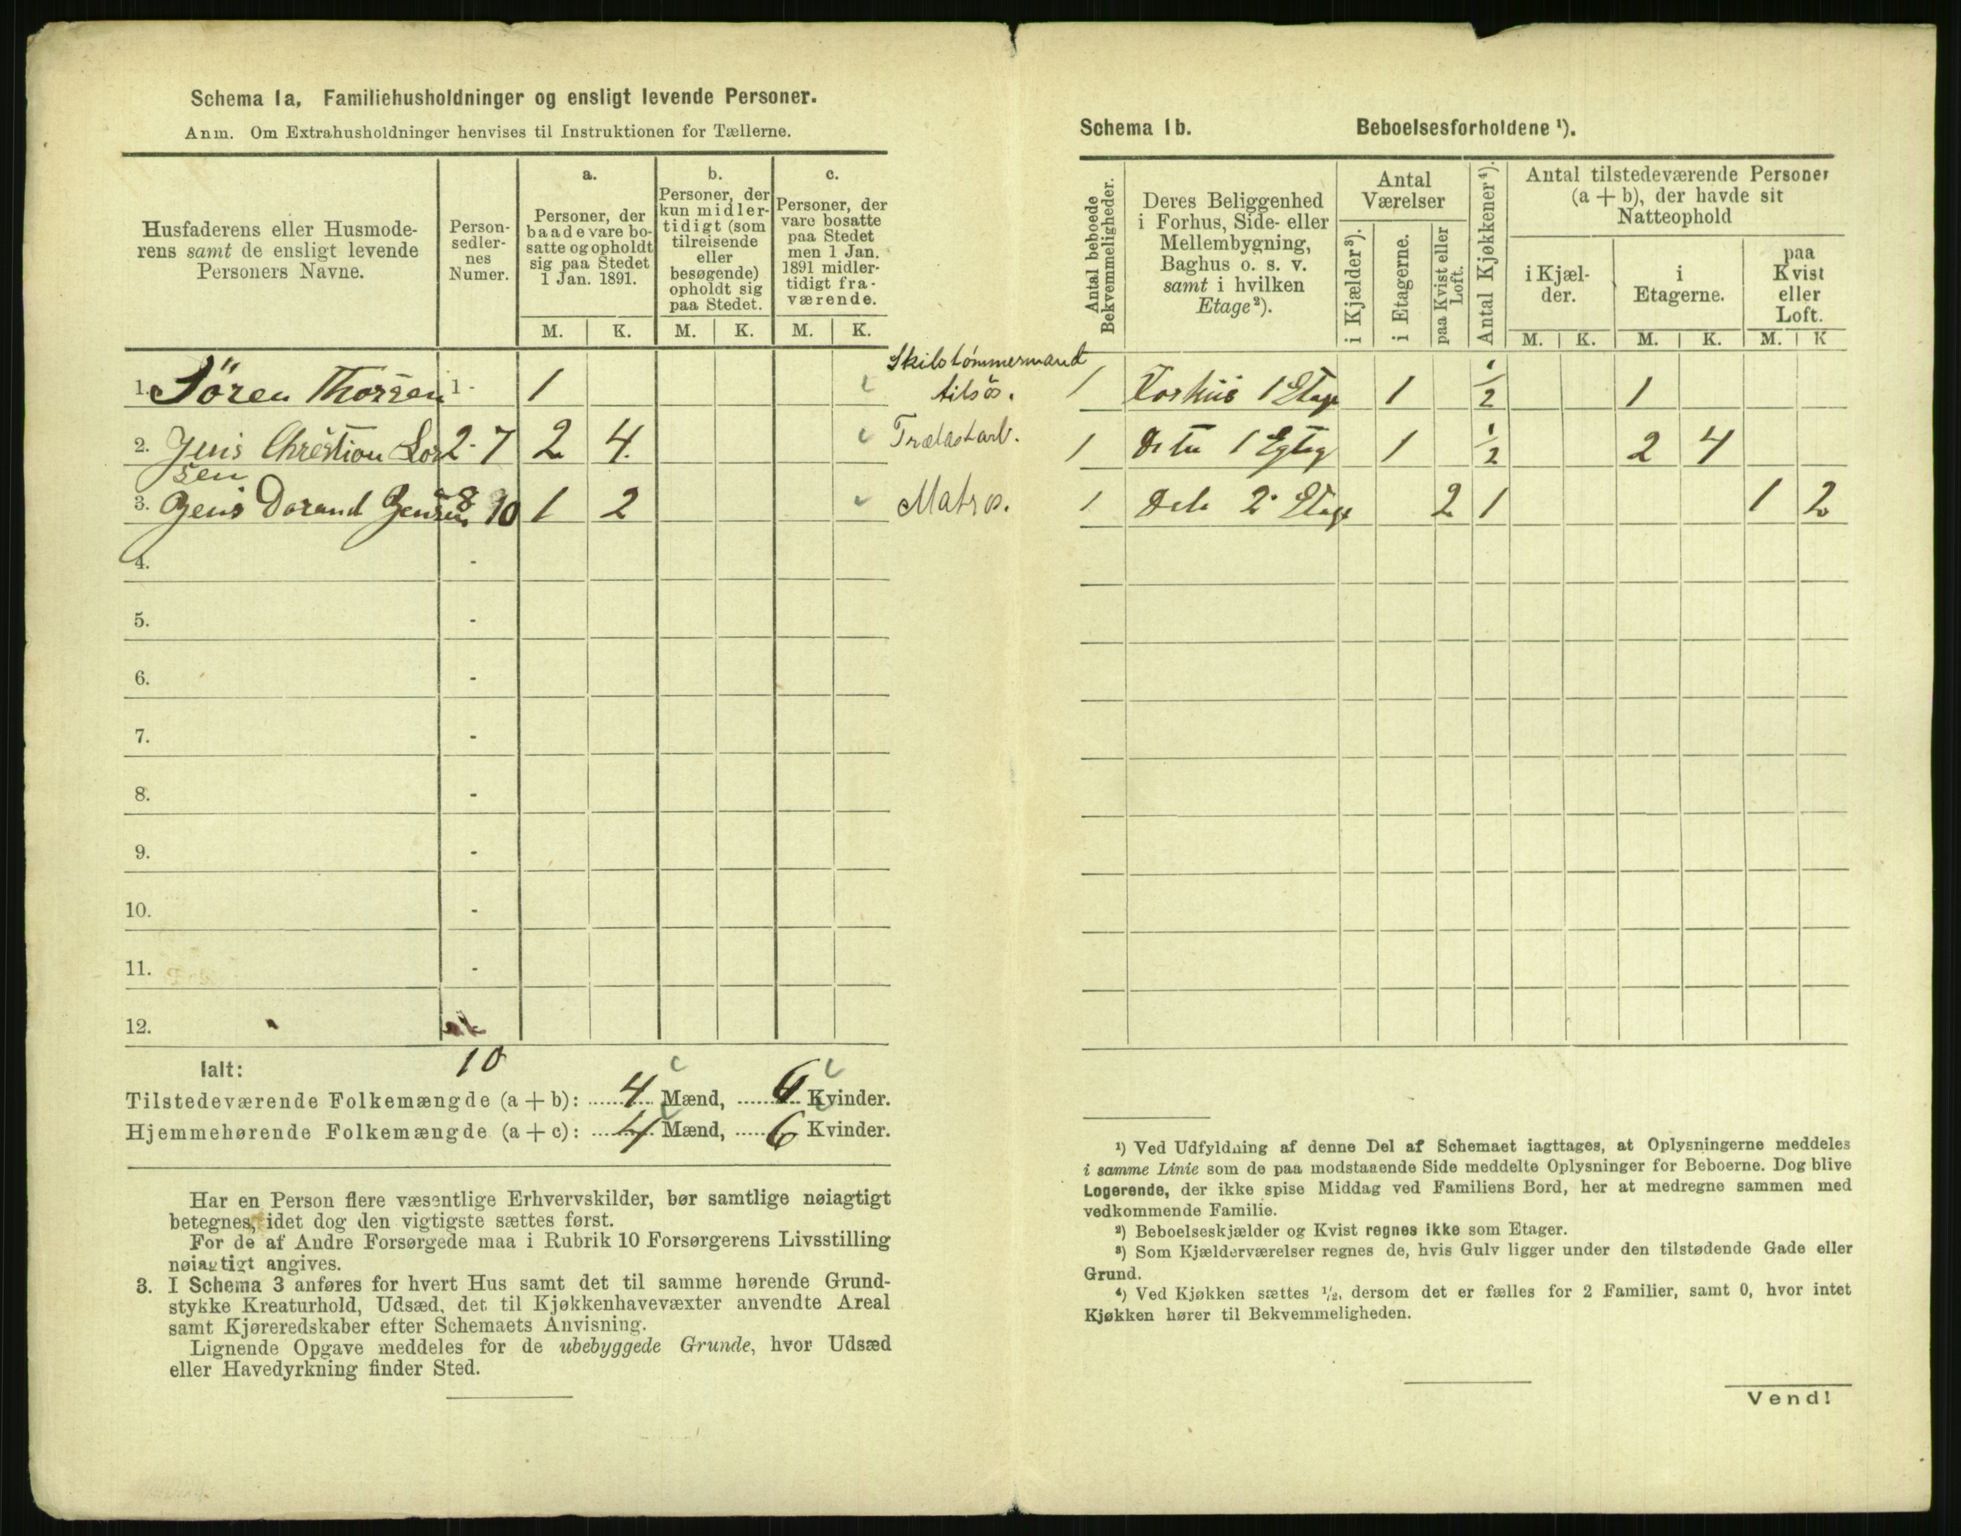 Schema 1a, Familiehusholdninger og ensligt levende Personer.
Anm. Om Extrahusholdninger henvises til Instruktionen for Tællerne.
Husfaderens eller Husmode-
rens samt de ensligt levende
Personers Navne.
Person-
sedler-
nes
Numer.
a.
Personer, der
baade vare bo-
satte og opholdt
sig paa Stedet
1 Jan. 1891.
b.
Personer, der
kun midler-
tidigt (som
tilreisende
eller
besøgende)
opholdt sig
paa Stedet.
c.
Personer, der
vare bosatte
paa Stedet
men 1 Jan.
1891 midler-
tidigt fra-
værende.
M. K. M. K. M. K.
1. Sören Thorsen 1 - 1
Skibstømmermand
tilsös.
2. Jens Christian Lar 2 - 7 2 4 Trælastarb.
sen
3. Jens Dorand Jensen 8 10 1 2 Matros.
4. -
5. -
6. -
7. -
8. -
9. -
10. -
11. -
12.
Ialt: 10
Tilstedeværende Folkemængde (a + b): 4 Mænd, 6 Kvinder.
Hjemmehørende Folkemængde (a + c): 4 Mænd, 6 Kvinder.
Har en Person flere væsentlige Erhvervskilder, bør samtlige nøiagtigt
betegnes, idet dog den vigtigste sættes først.
For de af Andre Forsørgede maa i Rubrik 10 Forsørgerens Livsstilling
nøiagtigt angives.
3. I Schema 3 anføres for hvert Hus samt det til samme hørende Grund-
stykke Kreaturhold, Udsæd, det til Kjøkkenhavevæxter anvendte Areal
samt Kjøreredskaber efter Schemaets Anvisning.
Lignende Opgave meddeles for de ubebyggede Grunde, hvor Udsæd
eller Havedyrkning finder Sted.
Schema 1b. Beboelsesforholdene ¹).
Antal beboede
Bekvemmeligheder.
Deres Beliggenhed
i Forhus, Side- eller
Mellembygning,
Baghus o. s. v.
samt i hvilken
Etage²).
Antal
Værelser
i Kjælder³).
i Etagerne.
paa Kvist eller
Loft.
Antal Kjøkkener⁴).
Antal tilstedeværende Personer
(a + b), der havde sit
Natteophold
i Kjæl-
der.
i
Etagerne.
paa
Kvist
eller
Loft.
M. K. M. K. M. K
1 Forhus 1 Etage 1 1/2 1
1 1 1 1/2 2 4
1 2 Etage 2 1 1 2
¹) Ved Udfyldning af denne Del af Schemaet iagttages, at Oplysningerne meddeles
i samme Linie som de paa modstaaende Side meddelte Oplysninger for Beboerne. Dog blive
Logerende, der ikke spise Middag ved Familiens Bord, her at medregne sammen med
vedkommende Familie.
²) Beboelseskjælder og Kvist regnes ikke som Etager.
³) Som Kjælderværelser regnes de, hvis Gulv ligger under den tilstødende Gade eller
Grund.
⁴) Ved Kjøkken sættes ½, dersom det er fælles for 2 Familier, samt 0, hvor intet
Kjøkken hører til Bekvemmeligheden.
Vend!